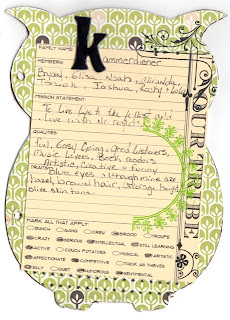 FAMILY NAME: Kammerdiener
MEMBERS:
Bryan, Elisa, Noah, Miranda,
Joshua, Rocky + Lola
MISSION STATEMENT:
To Live Life to the fullest and
Live with No regrets
QUALITIES:
Fun, Easy Going, Good Listeners,
Music Lovers, Book readers
Artistic, Creative + funny
TRAITS: Blue eyes
hazel, brown hair, average height
olive skin tones.
MARK ALL THAT APPLY:
BUNCH GANG CREW BROOD TROUPE
CRAZY SERIOUS INTELLECTUAL STILL LEARNING
ACTIVE COUCH POTATOES MUSICAL ARTISTIC
AFFECTIONATE COMPETITIVE THICK AS THIEVES
SILLY QUIET HUMOROUS SENTIMENTAL
YOUR TRIBE